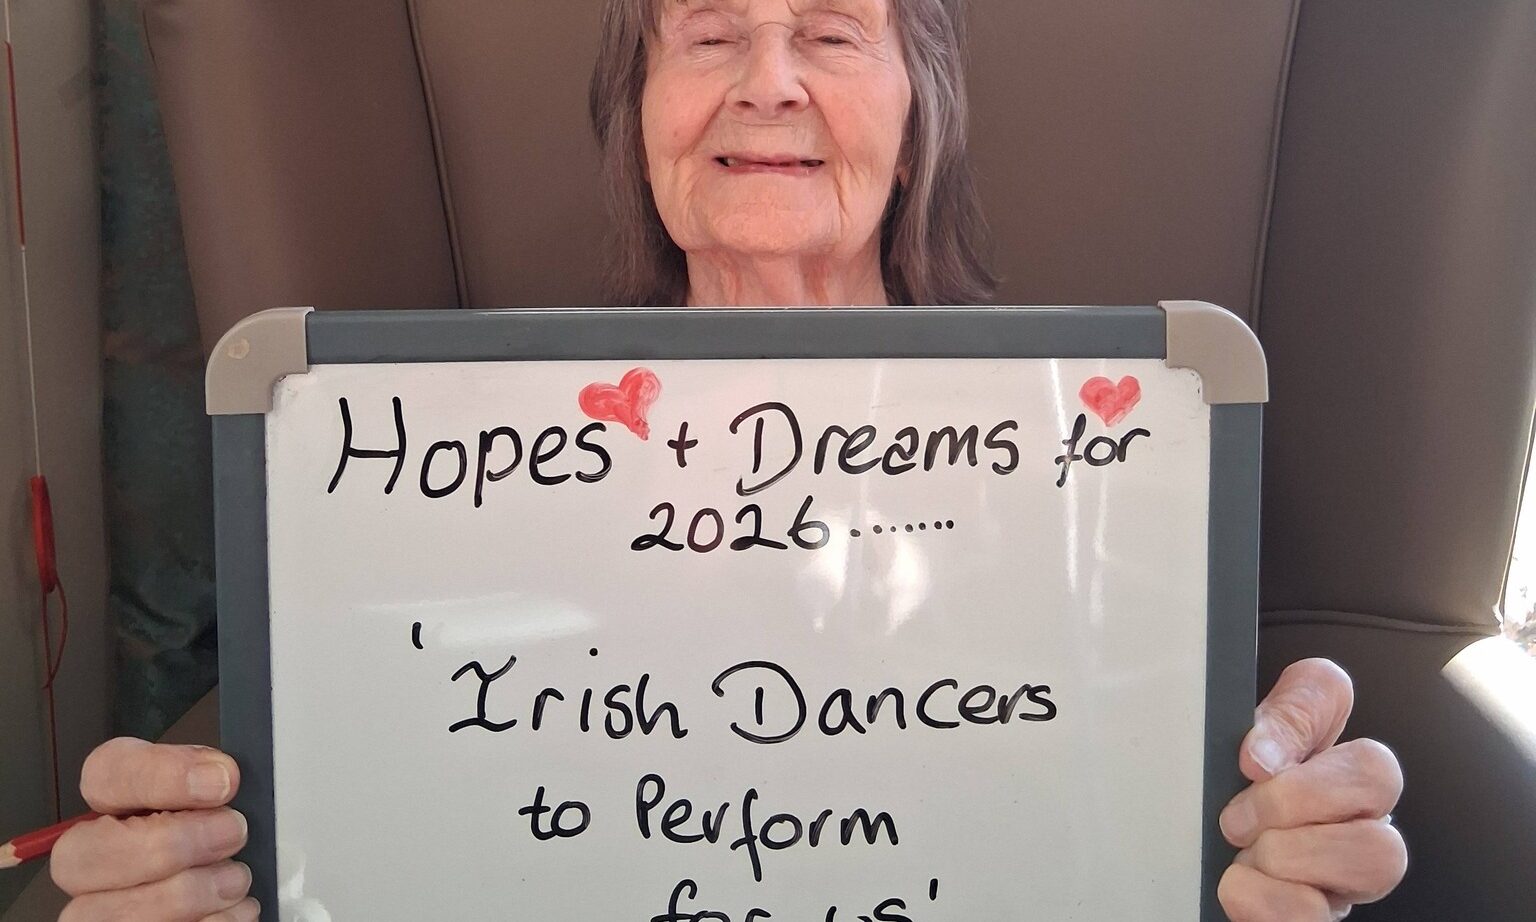 Hopes + Dreams for
2026.......
'Irish Dancers
to Perform
for us'